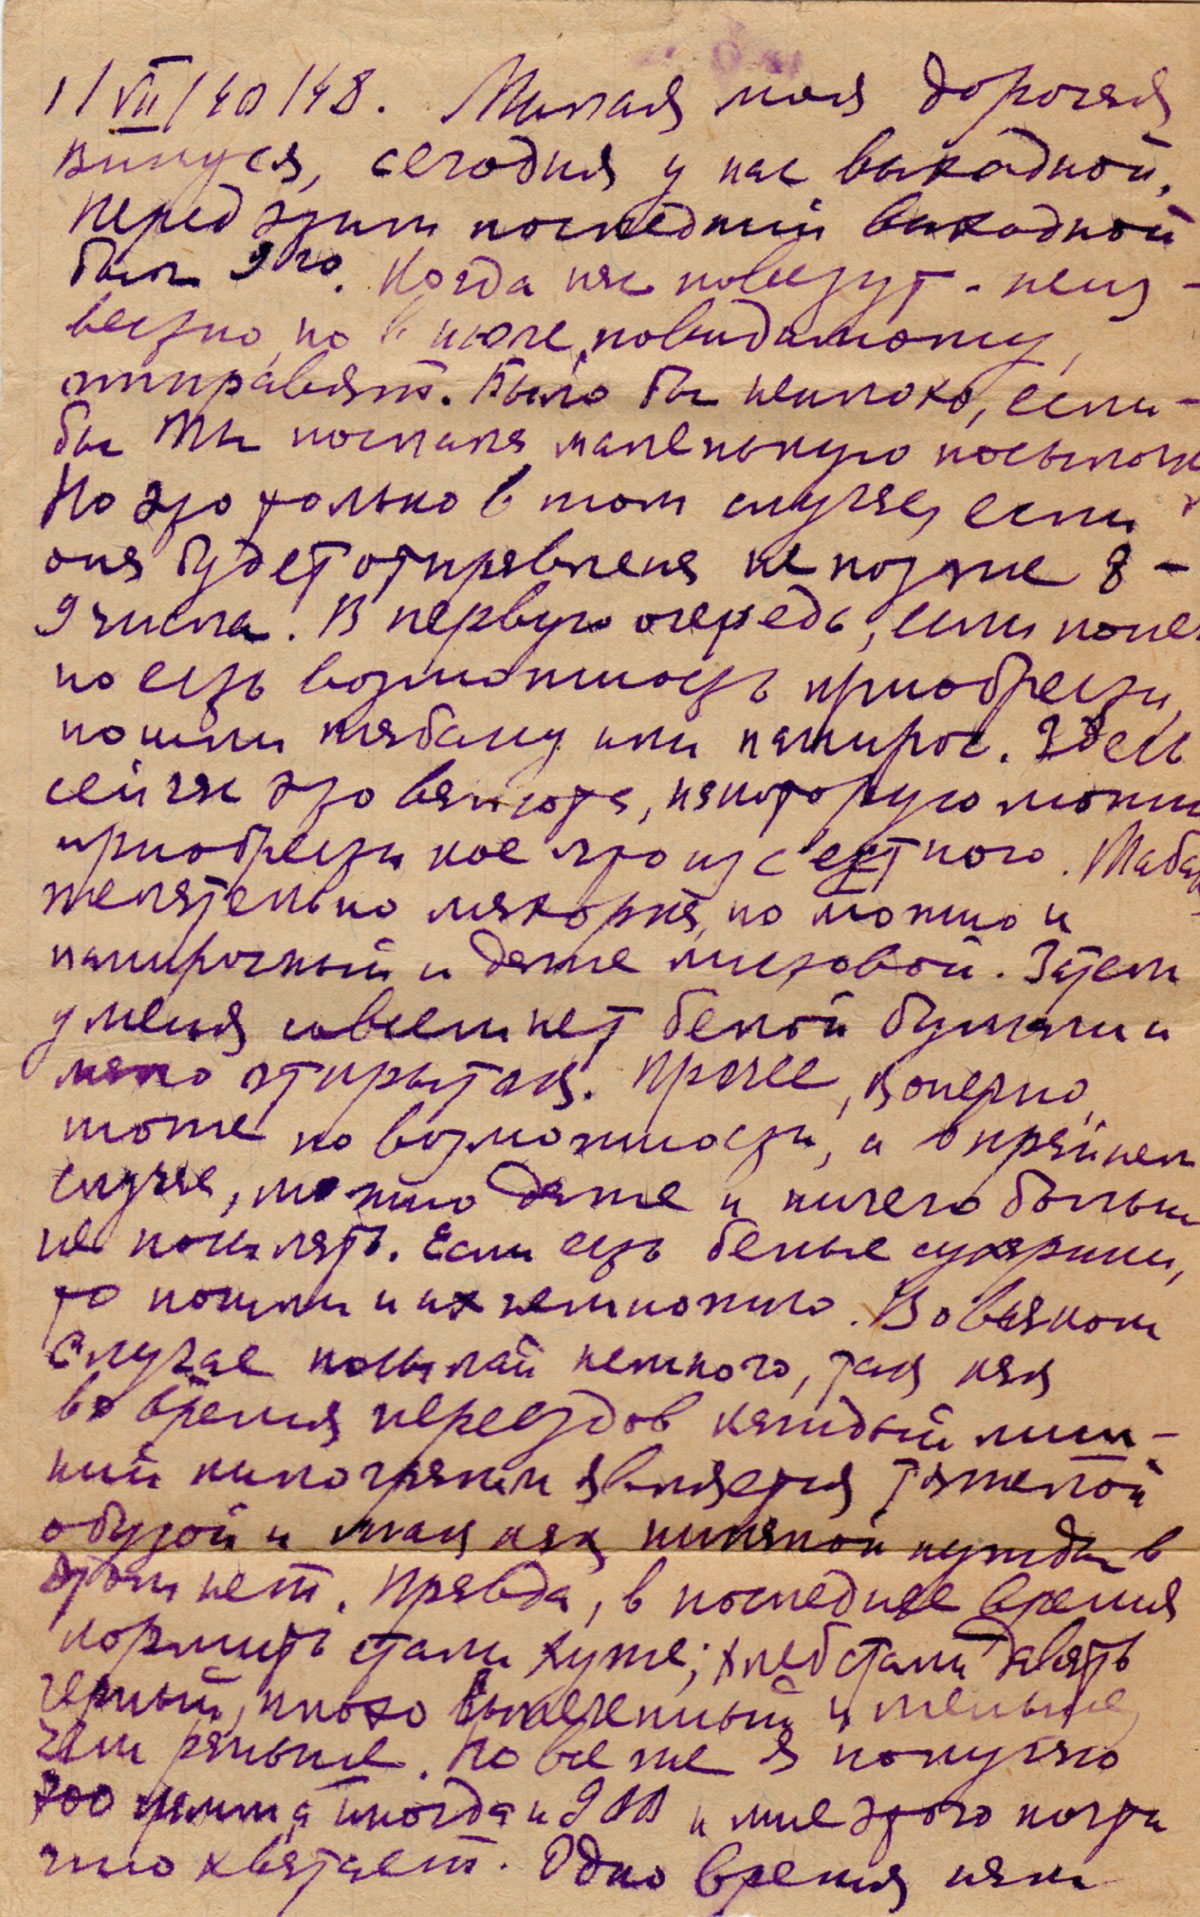 1/VII/40/48. Милая моя дорогая
сегодня у нас выходной,
Перед этим последний выходной
был 9го. Когда нас повезут - неиз-
вестно, но в июле, повидимому,
отправят. Было бы неплохо, если-
бы ты послала маленькую посылочк
Но это только в том случае, если
она будет отправлена не позже 8-
9 числа. В первую очередь, если конеч
но есть возможность приобрести,
пошли табаку или папирос. Здесь
сейчас это валюта, на которую можно
приобрести кое что из съестного. Табак
желательно махорка, но можно и
папиросный и даже листовой. Затем
у меня совсем нет белой бумаги и
мало открыток. Прочее, конечно,
тоже по возможности, а в крайнем
случае, можно даже и ничего больше
не посылать. Если есть белые сухарики,
то пошли и их немножко. Во всяком
случае посылай немного, так как
во время переездов каждый лиш-
ний килограмм является тяжелой
обузой и так как никакой нужды в
этом нет. Правда, в последнее время
кормить стали хуже; хлеб стали давать
черный, плохо выпеченный и меньше
чем раньше. Но все же я получаю
700 грамм, а иногда и 900 и мне этого
хватает. Одно время нам